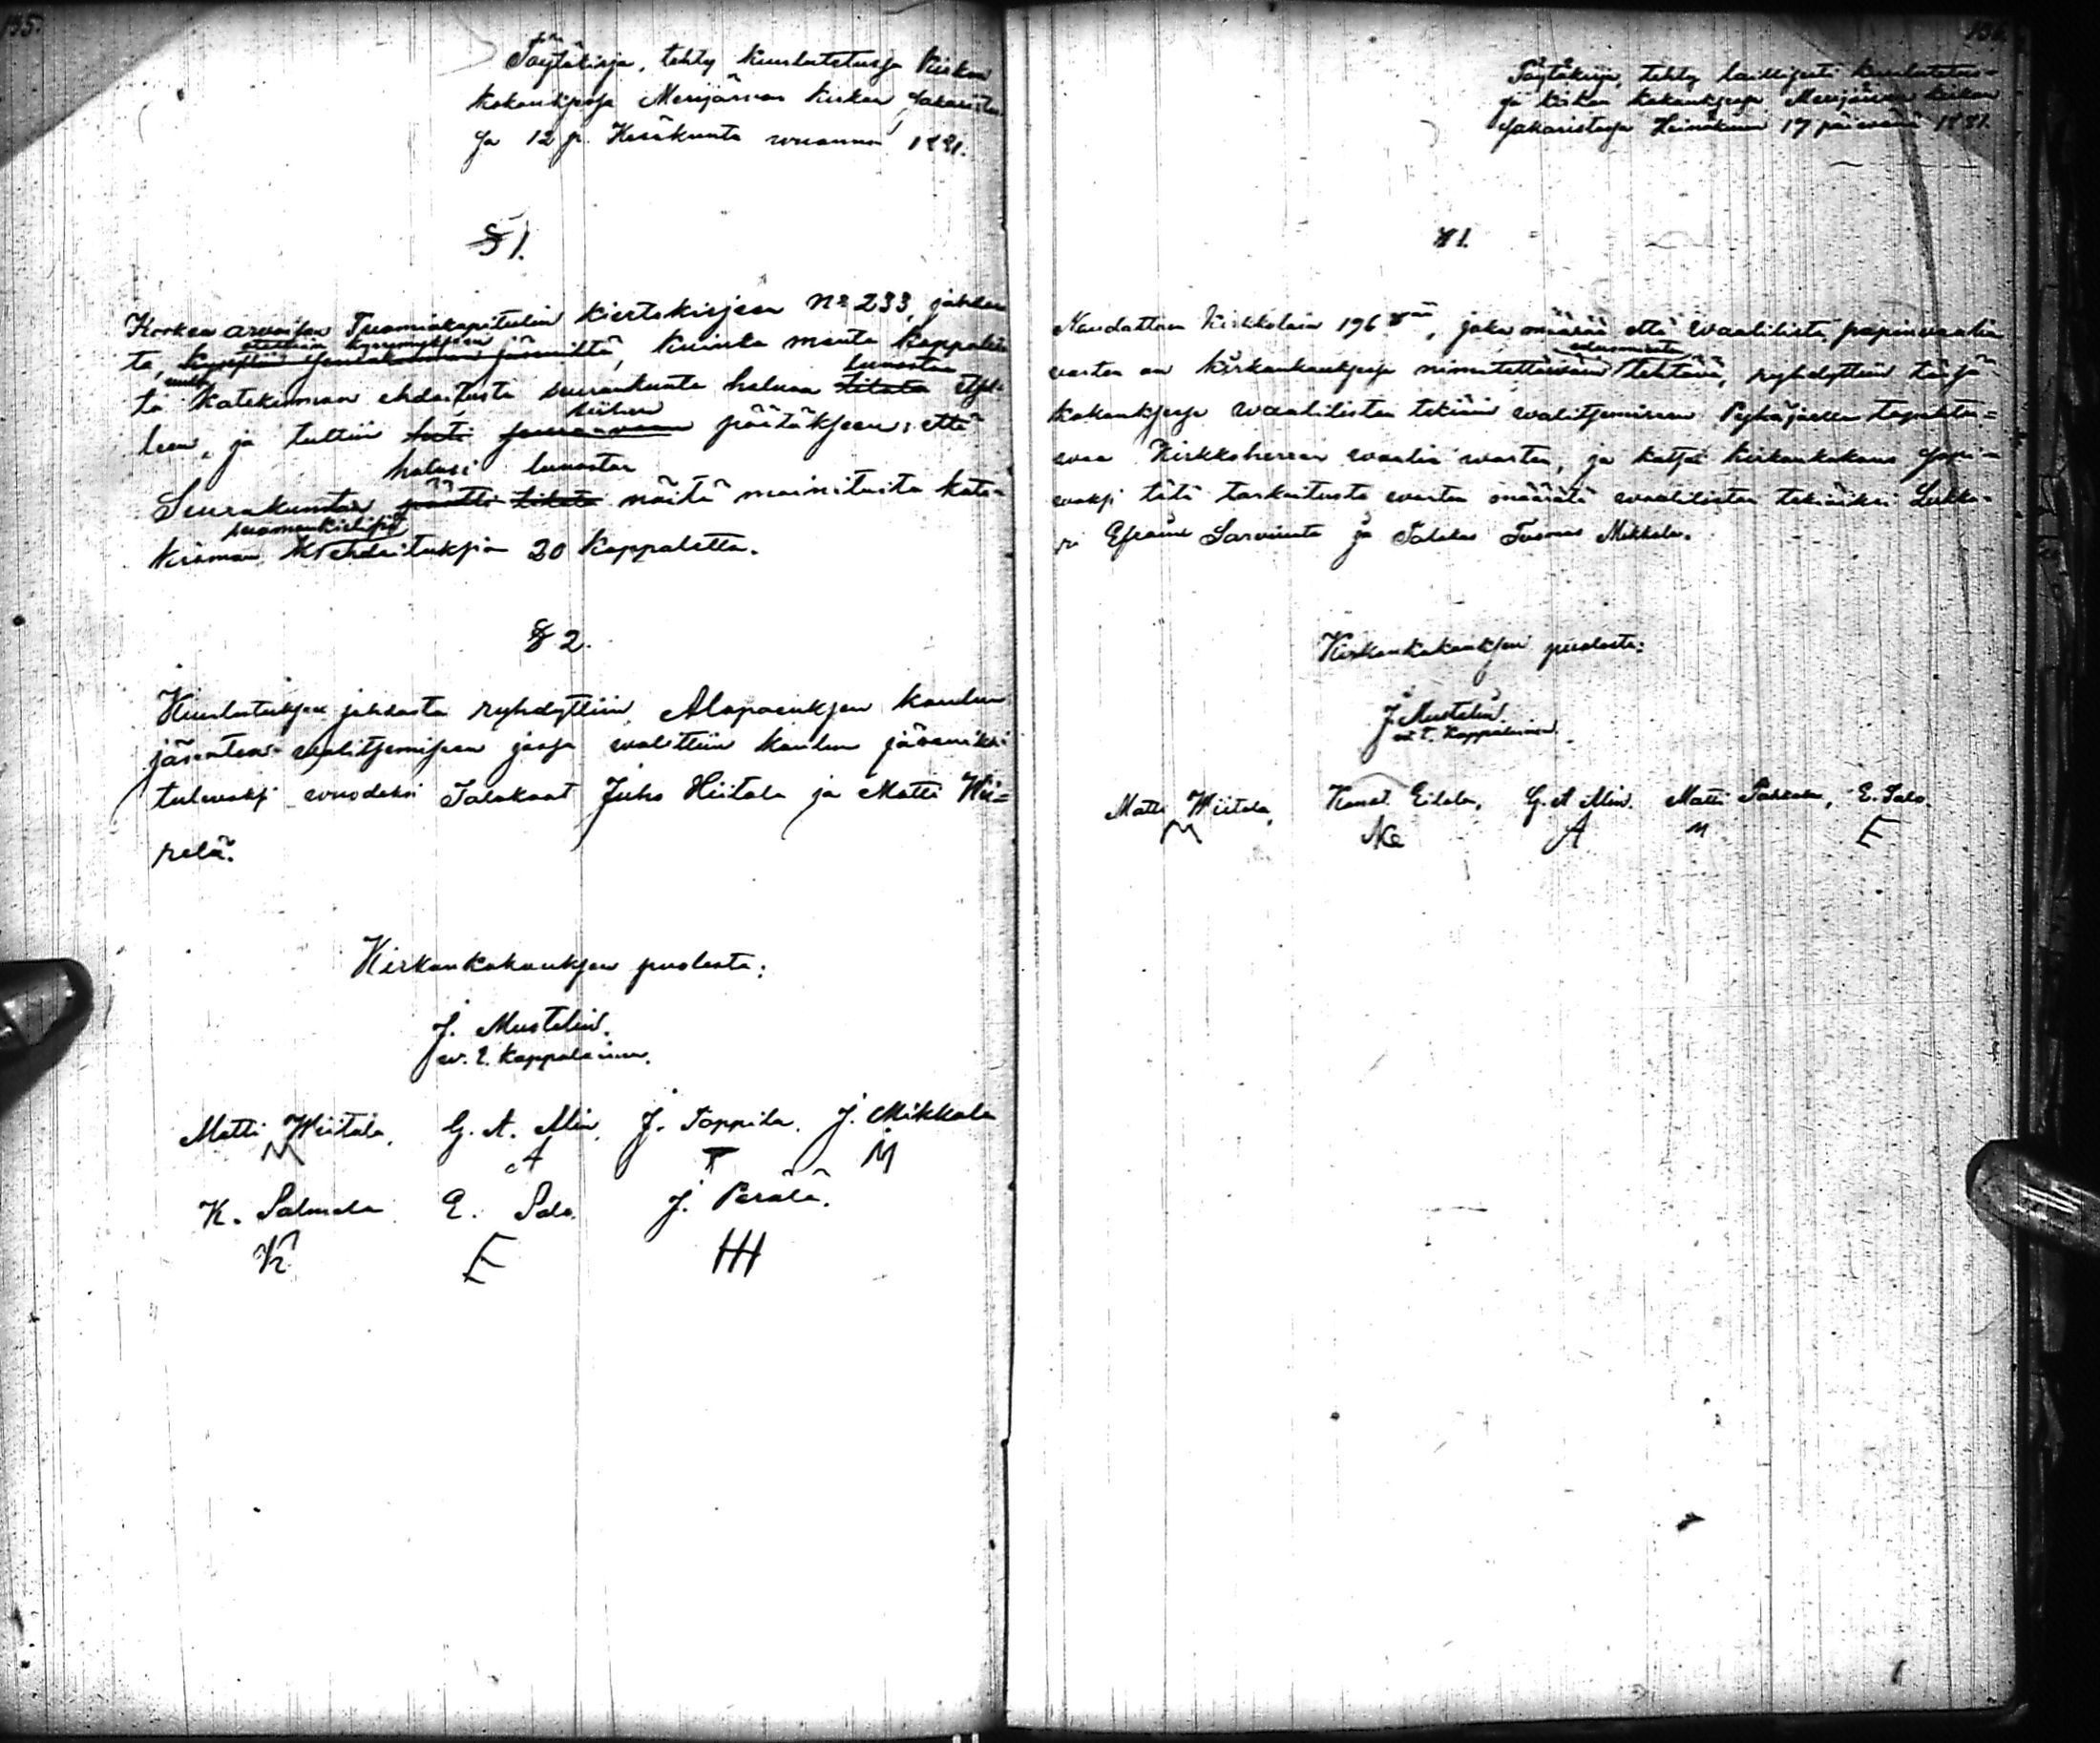 135.
Pöytäkirja, tehty kuulutetussa Kirkon
kokouksessa Merijärven kirkon sakaristos-
sa 12 p. Kesäkuuta vuonna 1881.
§ 1.
Korkea arvoisan Tuomiokapitulin kiertokirjeen No 233, johdos
ta, kysyttiin seurakunnan jäseniltä, kuinka monta kappalet
ta uutta Katekismon ehdoitusta seurakunta haluaa tilata lunastaa itsel-
leen, ja tultiin siihen päätökseen, että
Seurakunta päätti tilata halusi lunastaa näitä mainituita Kate-
kismon suomenkielisiä ehdoituksia 20 Kappaletta.
§ 2.
Kuulutuksen johdosta ryhdyttiin Alapauksen koulun
jäsenten valitsemiseen jossa valittiin koulun jäseniksi
tulevaksi vuodeksi Talokaat Juho Hiitola ja Matti Wii=
relä.
Kirkonkokouksen puolesta:
J. Mustelin.
w. t. Kappalainen.
Matti Wiitala, G. A. Alin, J. Toppila, J. Mikkola
M A T M
K. Salmela E. Salo. J. Perälä.
K E HH
136.
Pöytäkirja, tehty laillisesti kuulutetus-
sa kirkon kokouksessa Merijärven kirkon
sakaristossa Heinäkuun 17 päivänä 1881.
§ 1.
Noudattaen Kirkkolain 196 §ää, joka määrää että vaalilista papinvaalia
varten on kirkonkokouksessa nimitettäväin tehtävä, ryhdyttiin tässä
kokouksessa vaalilistan tekiäin valitsemiseen Pyhäjoella tapahtu=
vaa Kirkkoherran vaalia varten, ja katsoi kirkonkokous sopi-
vaksi tätä tarkoitusta varten määrätä vaalilistan tekiäiksi Lukka-
ri Efraim Sarvinta ja Talokas Tuomas Mikkola.
Kirkonkokouksen puolesta:
J. Mustelin.
w. t. Kappalainen.
Matti Wiitala, Konst. Eilola, G. A Alin. Matti Pahkala, E. Salo.
M Ke A M E